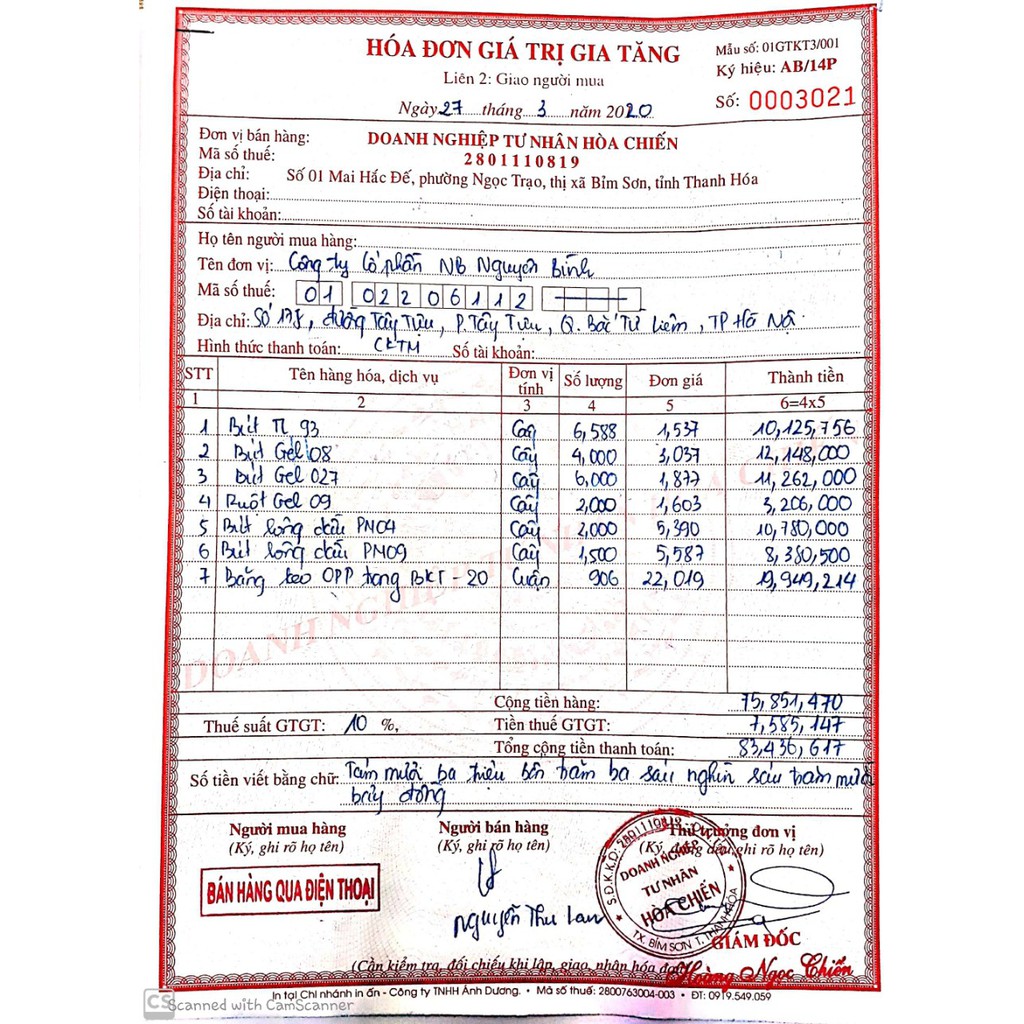 HÓA ĐƠN GIÁ TRỊ GIA TĂNG
Mẫu số: 01GTKT3/001
Liên 2: Giao người mua
Ký hiệu: AB/14P
Ngày 27 tháng 3 năm 2020
Số: 0003021
Đơn vị bán hàng: DOANH NGHIỆP TƯ NHÂN HÒA CHIẾN
Mã số thuế: 2801110819
Địa chỉ: Số 01 Mai Hắc Đế, phường Ngọc Trạo, thị xã Bỉm Sơn, tỉnh Thanh Hóa
Điện thoại:
Số tài khoản:
Họ tên người mua hàng:
Tên đơn vị: Công ty Cổ phần NB Nguyên Bình
Mã số thuế: 01 02206112
Địa chỉ: Số 178, đường Tây Tựu, P. Tây Tựu, Q. Bắc Từ Liêm, TP Hà Nội
Hình thức thanh toán: CKTM Số tài khoản:
STT Tên hàng hóa, dịch vụ Đơn vị tính Số lượng Đơn giá Thành tiền
1 2 3 4 5 6=4x5
1 Bút TL 93 Cây 6,588 1,537 10,125,756
2 Bút Gel 08 Cây 4,000 3,037 12,148,000
3 Bút Gel 027 Cây 6,000 1,877 11,262,000
4 Ruột Gel 09 Cây 2,000 1,603 3,206,000
5 Bút lông dầu PM04 Cây 2,000 5,390 10,780,000
6 Bút lông dầu PM09 Cây 1,500 5,587 8,380,500
7 Băng keo OPP trong BKT-20 Cuộn 906 22,019 19,949,214
Cộng tiền hàng: 75,851,470
Thuế suất GTGT: 10 %, Tiền thuế GTGT: 7,585,147
Tổng cộng tiền thanh toán: 83,436,617
Số tiền viết bằng chữ: Tám mươi ba triệu bốn trăm ba sáu nghìn sáu trăm mười
bảy đồng
Người mua hàng Người bán hàng Thủ trưởng đơn vị
(Ký, ghi rõ họ tên) (Ký, ghi rõ họ tên) (Ký, đóng dấu, ghi rõ họ tên)
BÁN HÀNG QUA ĐIỆN THOẠI
S.Đ.K.K.D: 2801110819
DOANH NGHIỆP
TƯ NHÂN
HÒA CHIẾN
TX. BỈM SƠN T. THANH HÓA
Nguyễn Thu Lan
GIÁM ĐỐC
Hoàng Ngọc Chiến
(Cần kiểm tra, đối chiếu khi lập, giao, nhận hóa đơn)
In tại Chi nhánh in ấn - Công ty TNHH Ánh Dương. • Mã số thuế: 2800763004-003 • ĐT: 0919.549.059
CS Scanned with CamScanner